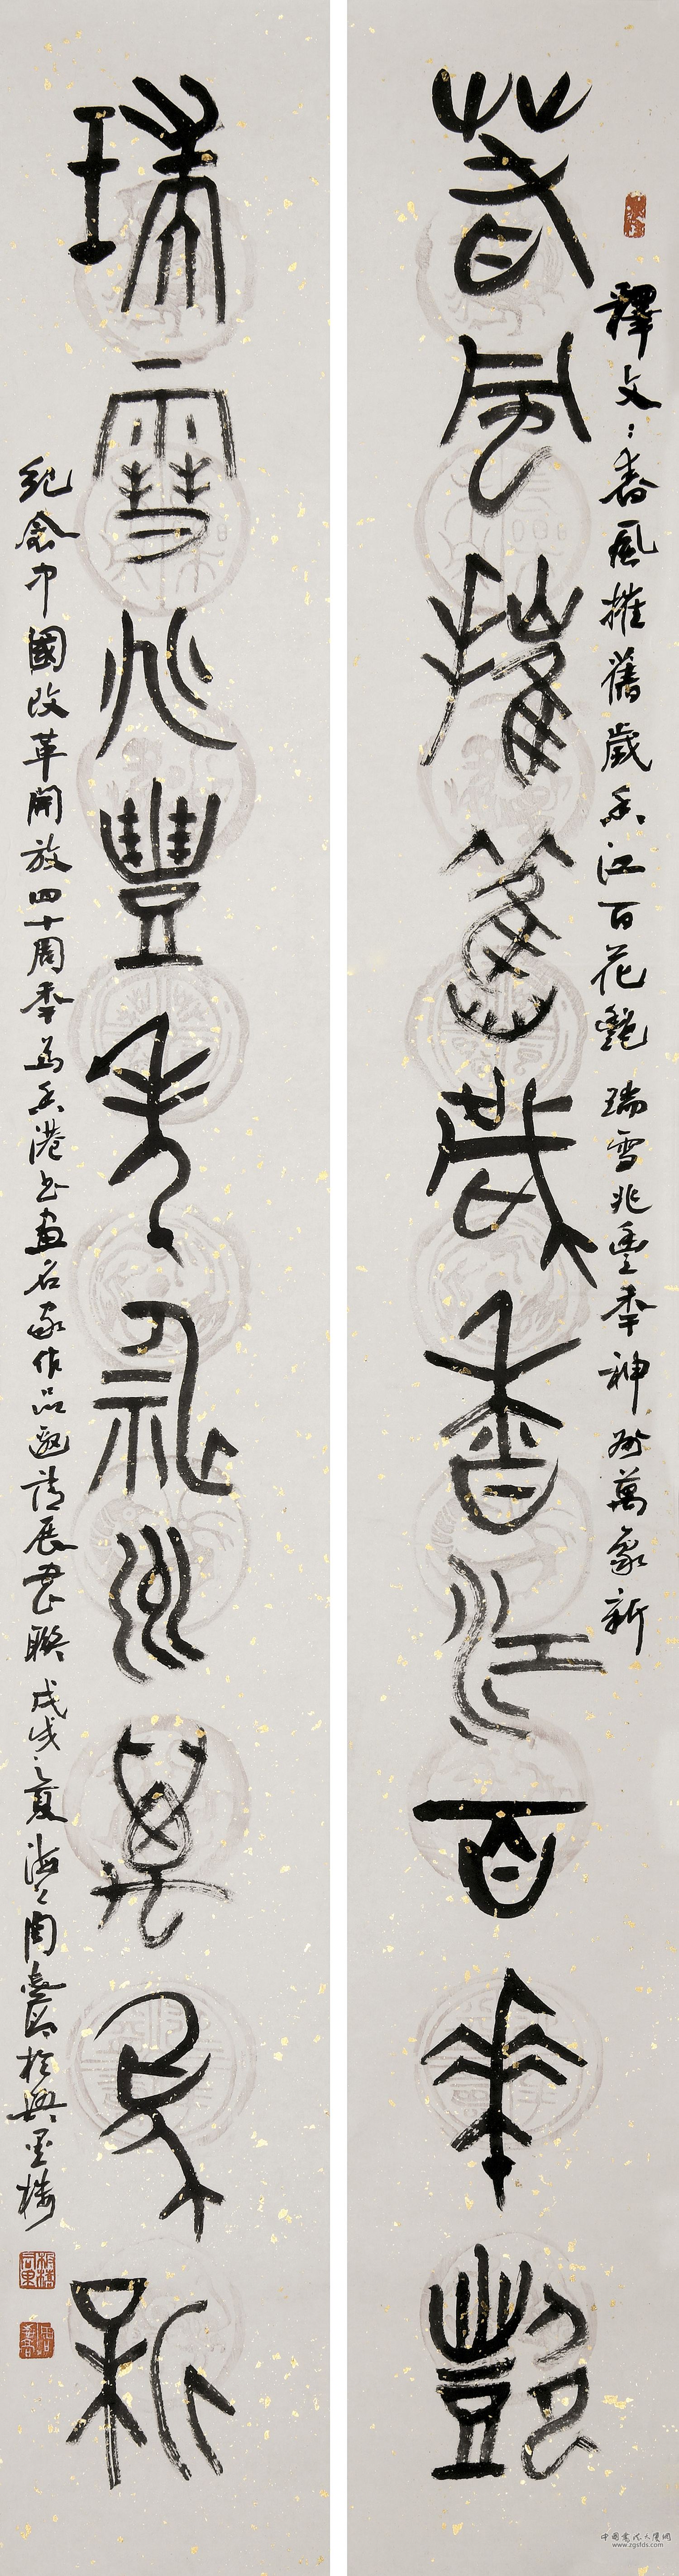 春風摧舊歲香江百花艷
釋文：春風摧舊歲香江百花艷 瑞雪兆豐年神州萬象新
瑞雪兆豐年神州萬象新
紀念中國改革開放四十周年為香港書畫名家作品邀請展書聯 戊戌之夏海上周
於興墨樓
中國書法大廈網
www.zgsfds.com